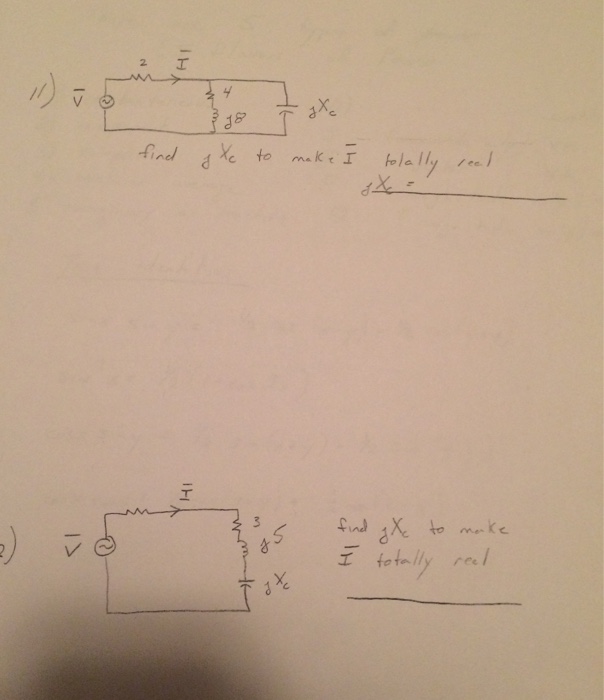 11)
V̅
2
I̅
4
j8
jXc
find jXc to make I̅ totally real
jXc =
V̅
I̅
3
j5
jXc
find jXc to make
I̅ totally real